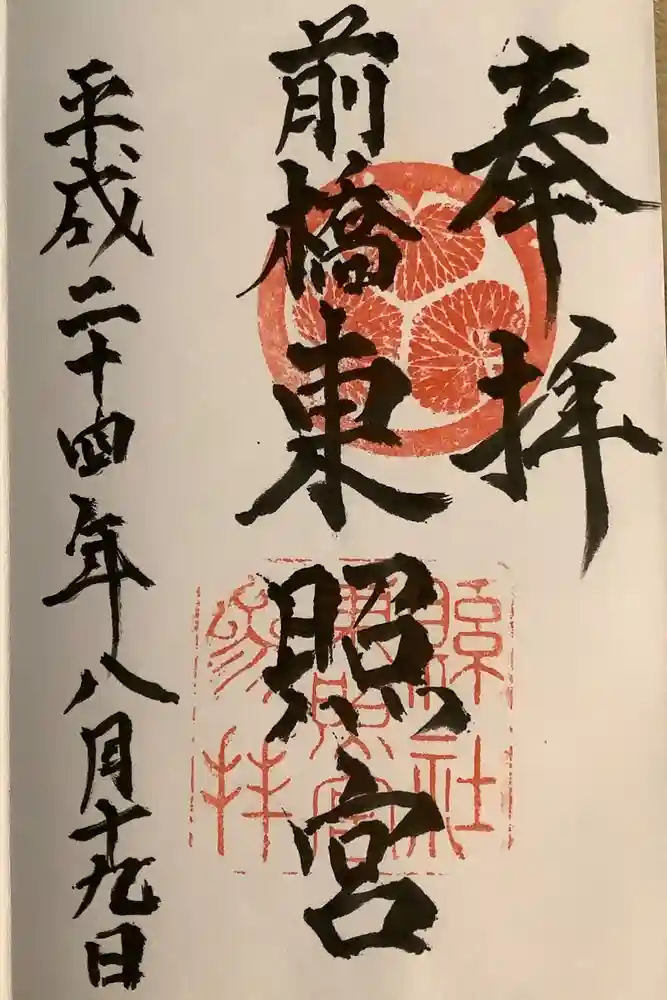 奉拝
前橋東照宮
平成二十四年八月十九日
縣社
東照宮
参拝